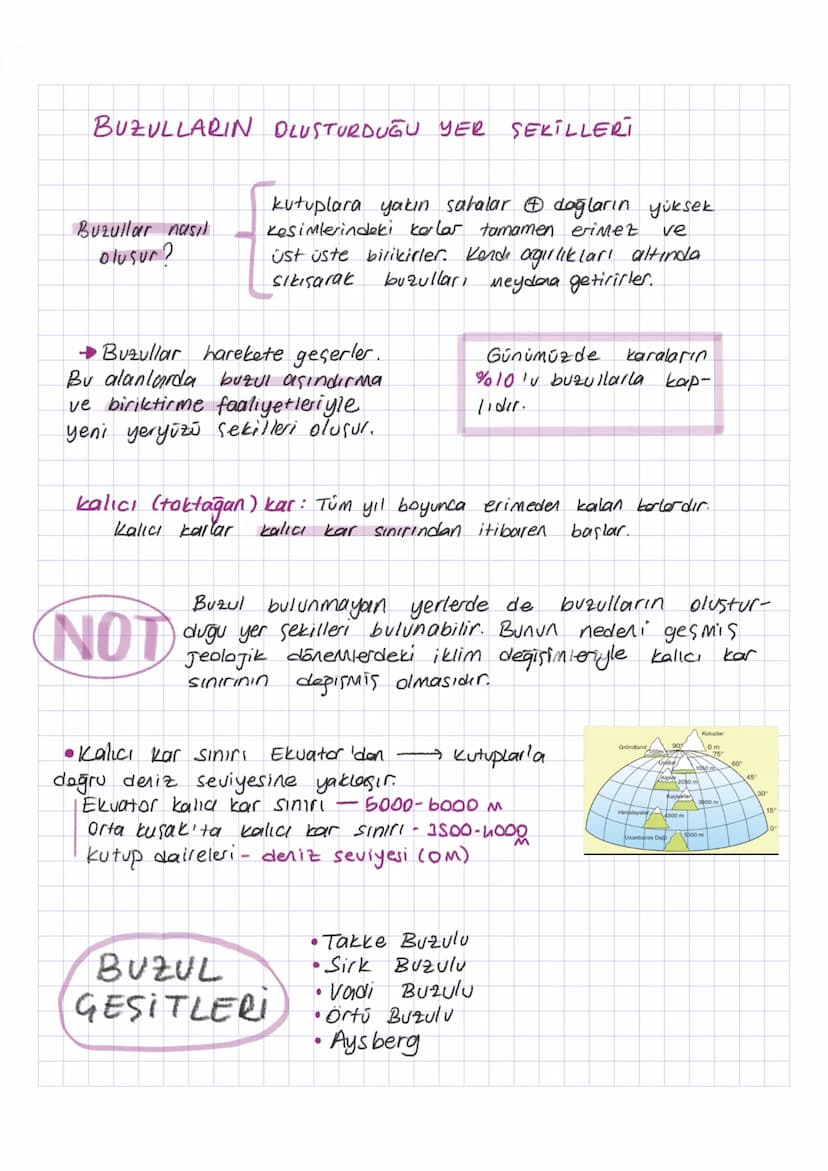 BUZULLARIN OLUŞTURDUĞU YER ŞEKİLLERİ
Buzullar nasıl
oluşur?
kutuplara yakın sahalar + dağların yüksek
kesimlerindeki karlar tamamen erimez ve
üst üste birikirler. Kendi ağırlıkları altında
sıkışarak buzulları meydana getirirler.
→ Buzullar harekete geçerler.
Bu alanlarda buzul aşındırma
ve biriktirme faaliyetleriyle
yeni yeryüzü şekilleri oluşur.
Günümüzde karaların
%10'u buzullarla kap-
lıdır.
kalıcı (toktağan) kar: Tüm yıl boyunca erimeden kalan karlardır.
Kalıcı karlar kalıcı kar sınırından itibaren başlar.
NOT
Buzul bulunmayan yerlerde de buzulların oluştur-
duğu yer şekilleri bulunabilir. Bunun nedeni geçmiş
jeolojik dönemlerdeki iklim değişimleriyle kalıcı kar
sınırının değişmiş olmasıdır.
• Kalıcı kar sınırı Ekvator'dan → kutuplarla
doğru deniz seviyesine yaklaşır.
Ekvator kalıcı kar sınırı — 5000-6000 m
Orta kuşak'ta kalıcı kar sınırı - 3500-4000
m
kutup daireleri - deniz seviyesi (0M)
Kutuplar
Grönland
90°
0 m
75°
60°
1050 m
45°
Alpler
2050 m
30°
Kaçkarlar
3600 m
15°
Himalayalar
4300 m
0°
5000 m
BUZUL
ÇEŞİTLERİ
• Takke Buzulu
• Sirk Buzulu
• Vadi Buzulu
• Örtü Buzulu
• Aysberg